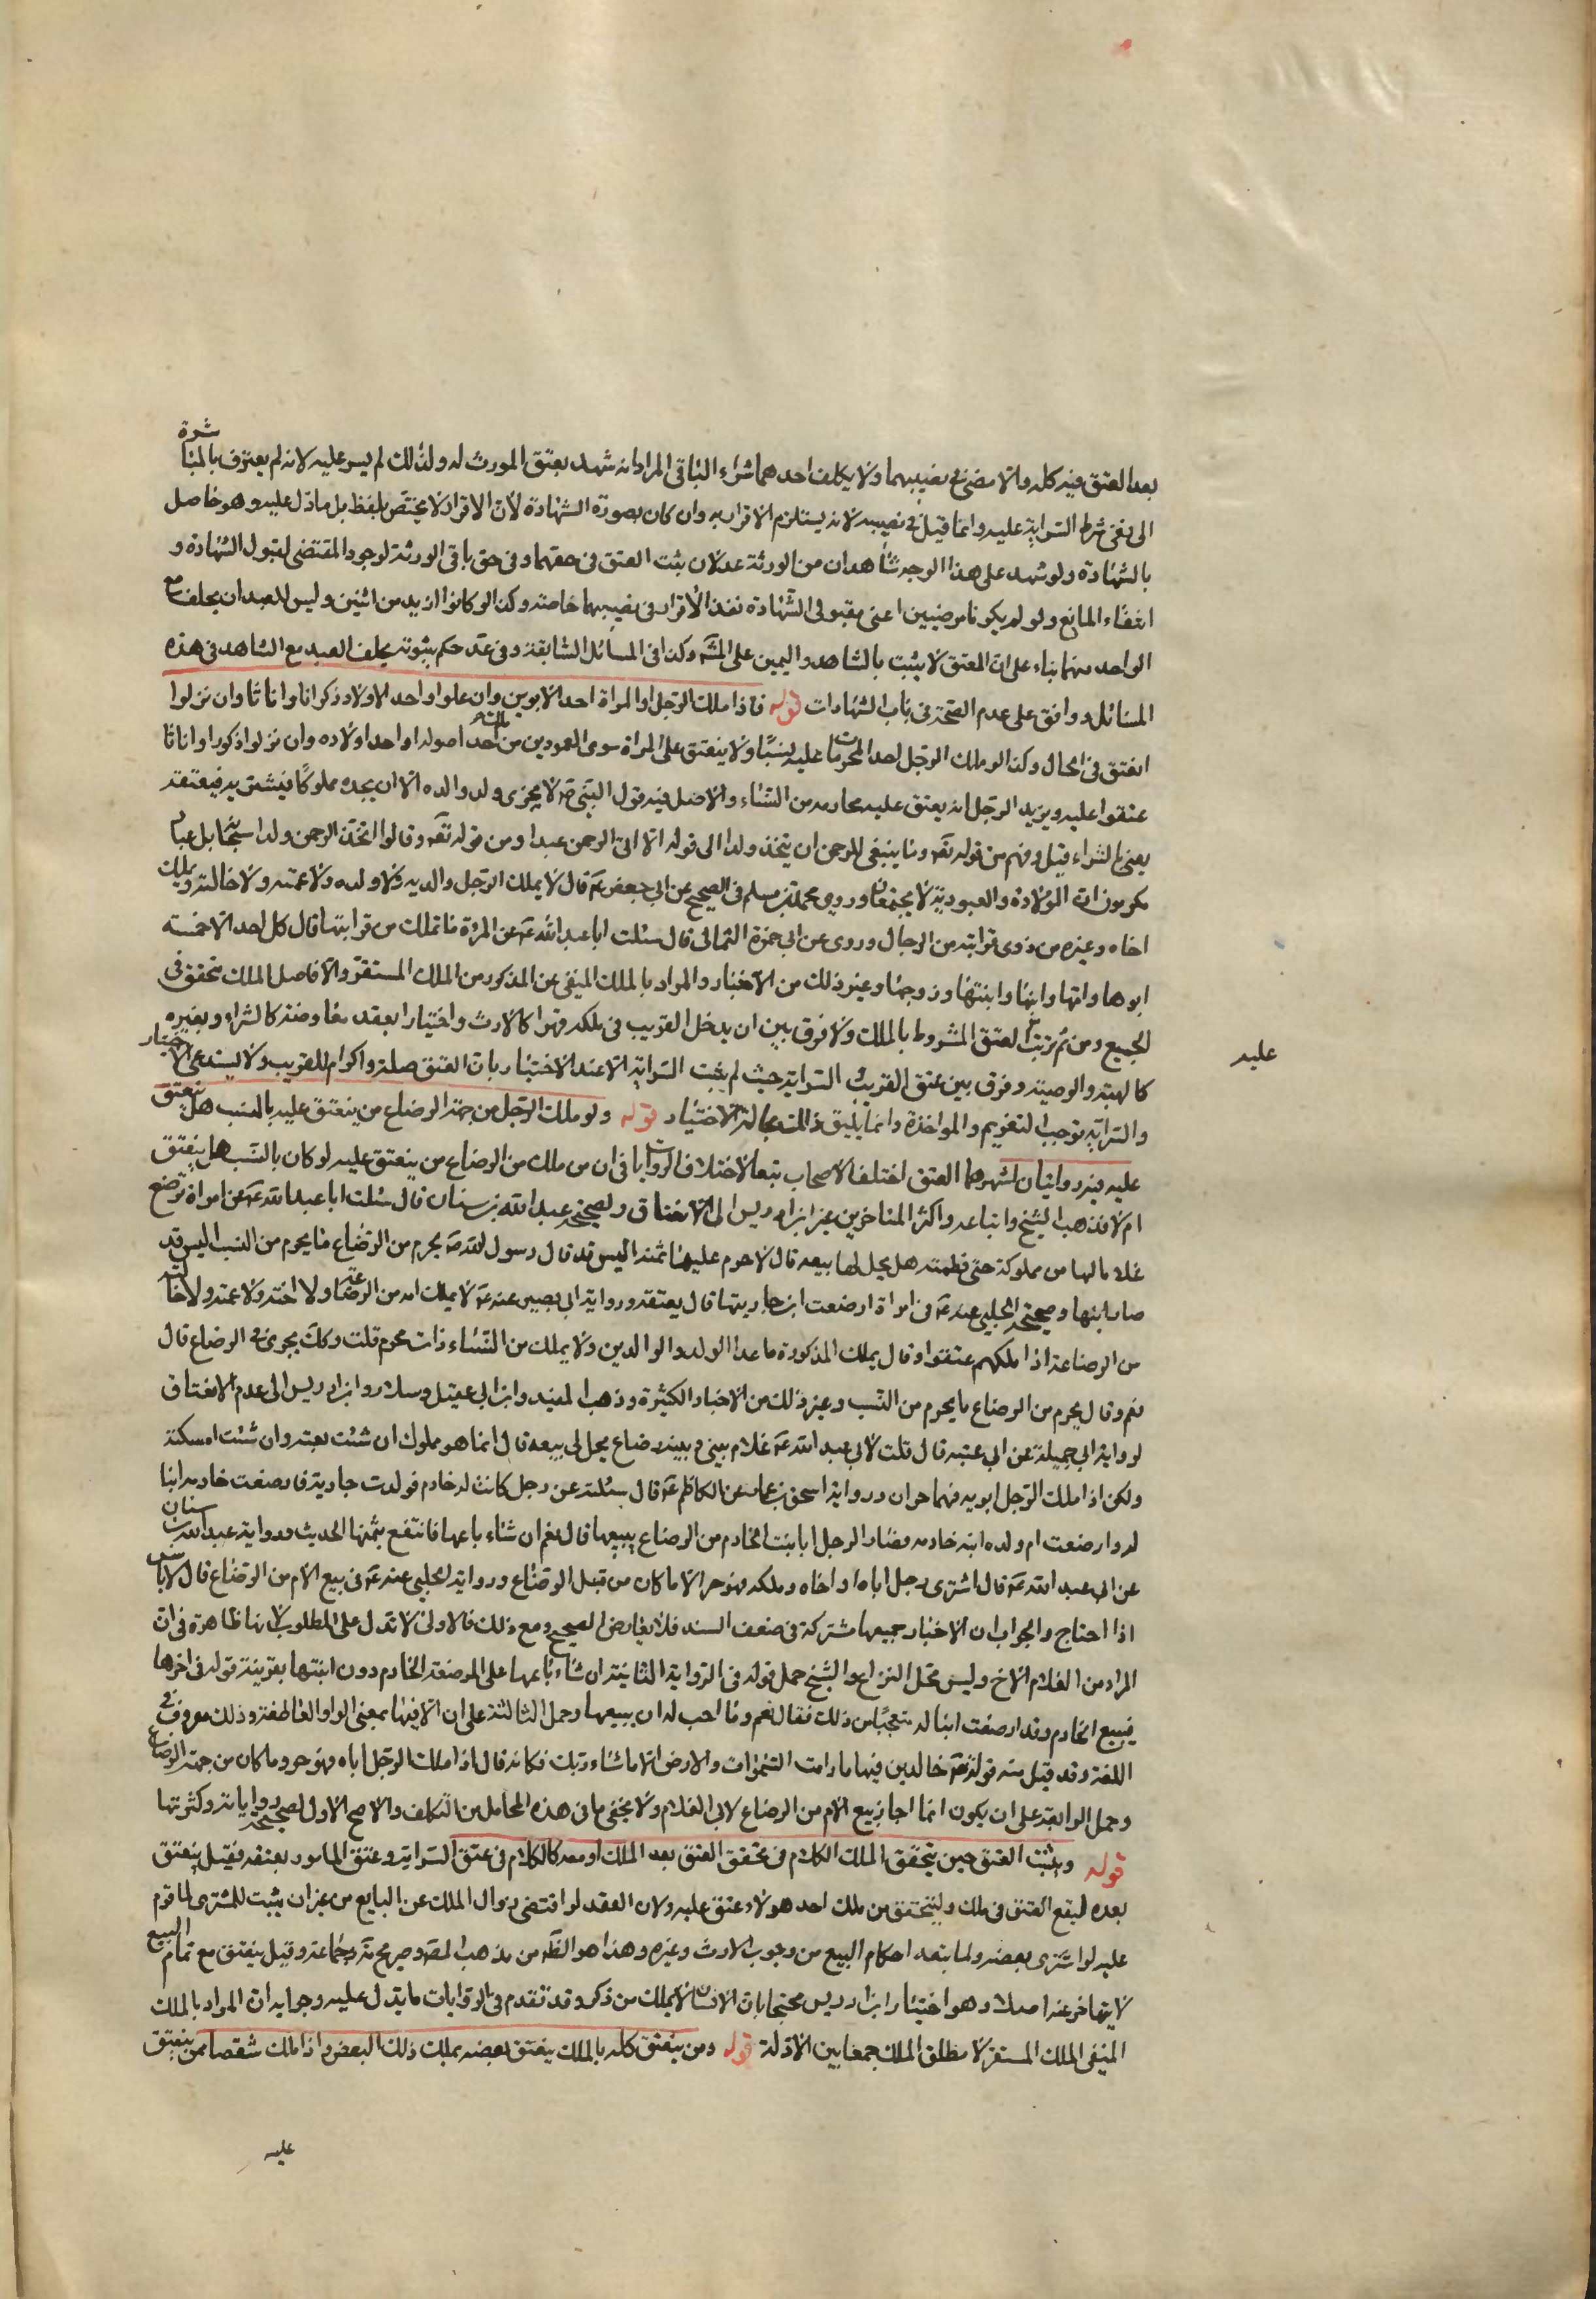 بعد العتق فيه كله والا مضى في نصيبهما ولا يكلف احدهما شراء الباقى المراد انه شهد بعتق المورث له ولذلك لم يسر عليه لانه لم يعترف بالمباشرة
الى نفى شرط السراية عليه وانما قيل فى نصيبه لانه يستلزم الاقرار به وان كان بصورة الشهادة لان الاقرار لا يختص بلفظ بل ما دل عليه وهو حاصل
بالشهادة ولو شهد على هذا الوجه شاهدان من الورثة عدلان ثبت العتق فى حقهما وفى حق باقى الورثة لوجود المقتضى لقبول الشهادة و
انتفاء المانع ولو لم يكونا مرضيين اعنى مقبولى الشهادة نفذ الاقرار فى نصيبهما خاصة وكذا لو كانوا ازيد من اثنين وليس للعبد ان يحلف مع
الواحد منهما بناء على ان العتق لا يثبت بالشاهد واليمين على المش وكذا فى المسائل السابقة وفى عد حكم بثبوته بحلف العبد مع الشاهد فى هذه
المسائل ووافق على عدم الصحة فى باب الشهادات قوله فاذا ملك الرجل او المراة احد الابوين وان علوا او احد الاولاد ذكرانا واناثا وان نزلوا
انعتق فى الحال وكذا لو ملك الرجل احد المحرمات عليه نسبا ولا ينعتق على المراة سوى العمودين من احد اصوله او احد اولاده وان نزلوا ذكورا او اناثا
عتقوا عليه ويزيد الرجل انه يعتق عليه محارمه من النساء والاصل فيه قول النبى ص لا يجزى ولد والده الا ان يجده مملوكا فيشتريه فيعتقه
يعنى بالشراء قيل وفهم من قوله تعه وما ينبغى للرحمن ان يتخذ ولدا الى قوله الا اتى الرحمن عبدا ومن قوله تعه وقالوا اتخذ الرحمن ولدا سبحانه بل عباد
مكرمون ان الولادة والعبودية لا يجتمعان وروى محمد بن مسلم فى الصحيح عن ابى جعفر ع قال لا يملك الرجل والديه ولا ولده ولا عمته ولا خالته ويملك
اخاه وغيره من ذوى قرابته من الرجال وروى عن ابى حمزة الثمالى قال سئلت ابا عبد الله ع عن المرئة ما تملك من قرابتها قال كل احد الا خمسة
ابوها وامها وابنها وابنتها وزوجها وغير ذلك من الاخبار والمراد بالملك المنفى عن المذكور من الملك المستقر والا فاصل الملك متحقق فى
الجميع ومن ثم ترتب العتق المشروط بالملك ولا فرق بين ان يدخل القريب فى ملكه قهرا كالارث واختيارا بعقد معاوضة كالشراء وبغيره
كالهبة والوصية وفرق بين عتق القريب السراية حيث لم يثبت السراية الا عند الاختيار بان العتق صلة واكرام للقريب ولا يستدعى الاختيار
عليه
والسراية توجب التغريم والمواخذة وانما يليق ذلك بحالة الاختيار قوله ولو ملك الرجل من جهة الرضاع من ينعتق عليه بالنسب هل ينعتق
عليه فيه روايتان اشهرهما العتق اختلف الاصحاب تبعا لاختلاف الروايات فى ان من ملك من الرضاع من ينعتق عليه لو كان بالنسب هل ينعتق
ام لا فذهب الشيخ واتباعه واكثر المتاخرين غير ابن ادريس الى الانعتاق لصحيحة عبد الله بن سنان قال سئلت ابا عبد الله ع عن امراة ترضع
غلاما لها من مملوكة حتى فطمته هل يحل لها بيعه قال لا حرم عليها ثمنه اليس قد قال رسول الله ص يحرم من الرضاع ما يحرم من النسب اليس قد
صار ابنها وصحيحة الحلبى عنه ع فى امراة ارضعت ابن جاريتها قال يعتقه ورواية ابى بصير عنه ع لا يملك امه من الرضاعة ولا اخته ولا عمته ولا خالته
من الرضاعة اذا ملكهم عتقوا وقال يملك المذكورة ما عدا الولد والوالدين ولا يملك من النساء ذات محرم قلت وكك يجرى فى الرضاع قال
نعم وقال يحرم من الرضاع ما يحرم من النسب وغير ذلك من الاخبار الكثيرة وذهب المفيد وابن ابى عقيل وسلار وابن ادريس الى عدم الانعتاق
لرواية ابى جميلة عن ابى عتيبة قال قلت لابى عبد الله ع غلام بينى وبينه رضاع يحل لى بيعه قال انما هو مملوك ان شئت بعته وان شئت امسكته
ولكن اذا ملك الرجل ابويه فهما حران ورواية اسحق بن عمار عن الكاظم ع قال سئلته عن رجل كانت له خادم فولدت جارية فارضعت خادمه ابنا
له وارضعت ام ولده ابنة خادمه فصار الرجل ابا بنت الخادم من الرضاع يبيعها قال نعم ان شاء باعها فانتفع بثمنها الحديث ورواية عبد الله بن سنان
عن ابى عبد الله ع قال اشترى رجل اباه او اخاه وملكه فهو حر الا ما كان من قبل الرضاع ورواية الحلبى عنه ع فى بيع الام من الرضاع قال لا باس
اذا احتاج والجواب ان الاخبار جميعها مشتركة فى ضعف السند فلا يعارض الصحيح ومع ذلك فالاولى لا تدل على المطلوب لانها ظاهرة فى ان
المراد من الغلام الاخ وليس محل النزاع والشيخ حمل قوله فى الرواية الثانية ان شاء باعها على المرضعة الخادم دون ابنتها بقرينة قوله فى اخرها
فيبيع الخادم وقد ارضعت ابنا له متعجبا من ذلك فقال نعم وما احب له ان يبيعها وحمل الثالثة على ان الا فيها بمعنى الواو العاطفة وذلك معروف فى
اللغة وقد قيل منه قوله تعه خالدين فيها ما دامت السموات والارض الا ما شاء ربك فكانه قال اذا ملك الرجل اباه فهو حر وما كان من جهة الرضاع
وحمل الرابعة على ان يكون انما اجاز بيع الام من الرضاع لابى الغلام ولا يخفى ما فى هذه المحامل من التكلف والاصح الاول لصحة رواياته وكثرتها
قوله ويثبت العتق حين يتحقق الملك الكلام فى تحقق العتق بعد الملك او معه كالكلام فى عتق السراية وعتق المامور بعتقه فقيل ينعتق
بعده ليقع العتق فى ملك وليتحقق من ملك احد هولاء عتق عليه ولان العقد لو اقتضى زوال الملك عن البايع من غير ان يثبت للمشترى لما قوم
عليه لو اشترى بعضه ولما تبعه احكام البيع من وجوب الارث وغيره وهذا هو الظ من مذهب المص وصريح ية وجماعة وقيل ينعتق مع تمام البيع
لا يتاخر عنه اصلا وهو اختيار ابن ادريس محتجا بان الانسان لا يملك من ذكر وقد تقدم فى الروايات ما يدل عليه وجوابه ان المراد بالملك
المنفى الملك المستقر لا مطلق الملك جمعا بين الادلة قوله ومن ينعتق كله بالملك ينعتق بعضه بملك ذلك البعض واذا ملك شقصا ممن ينعتق
عليه